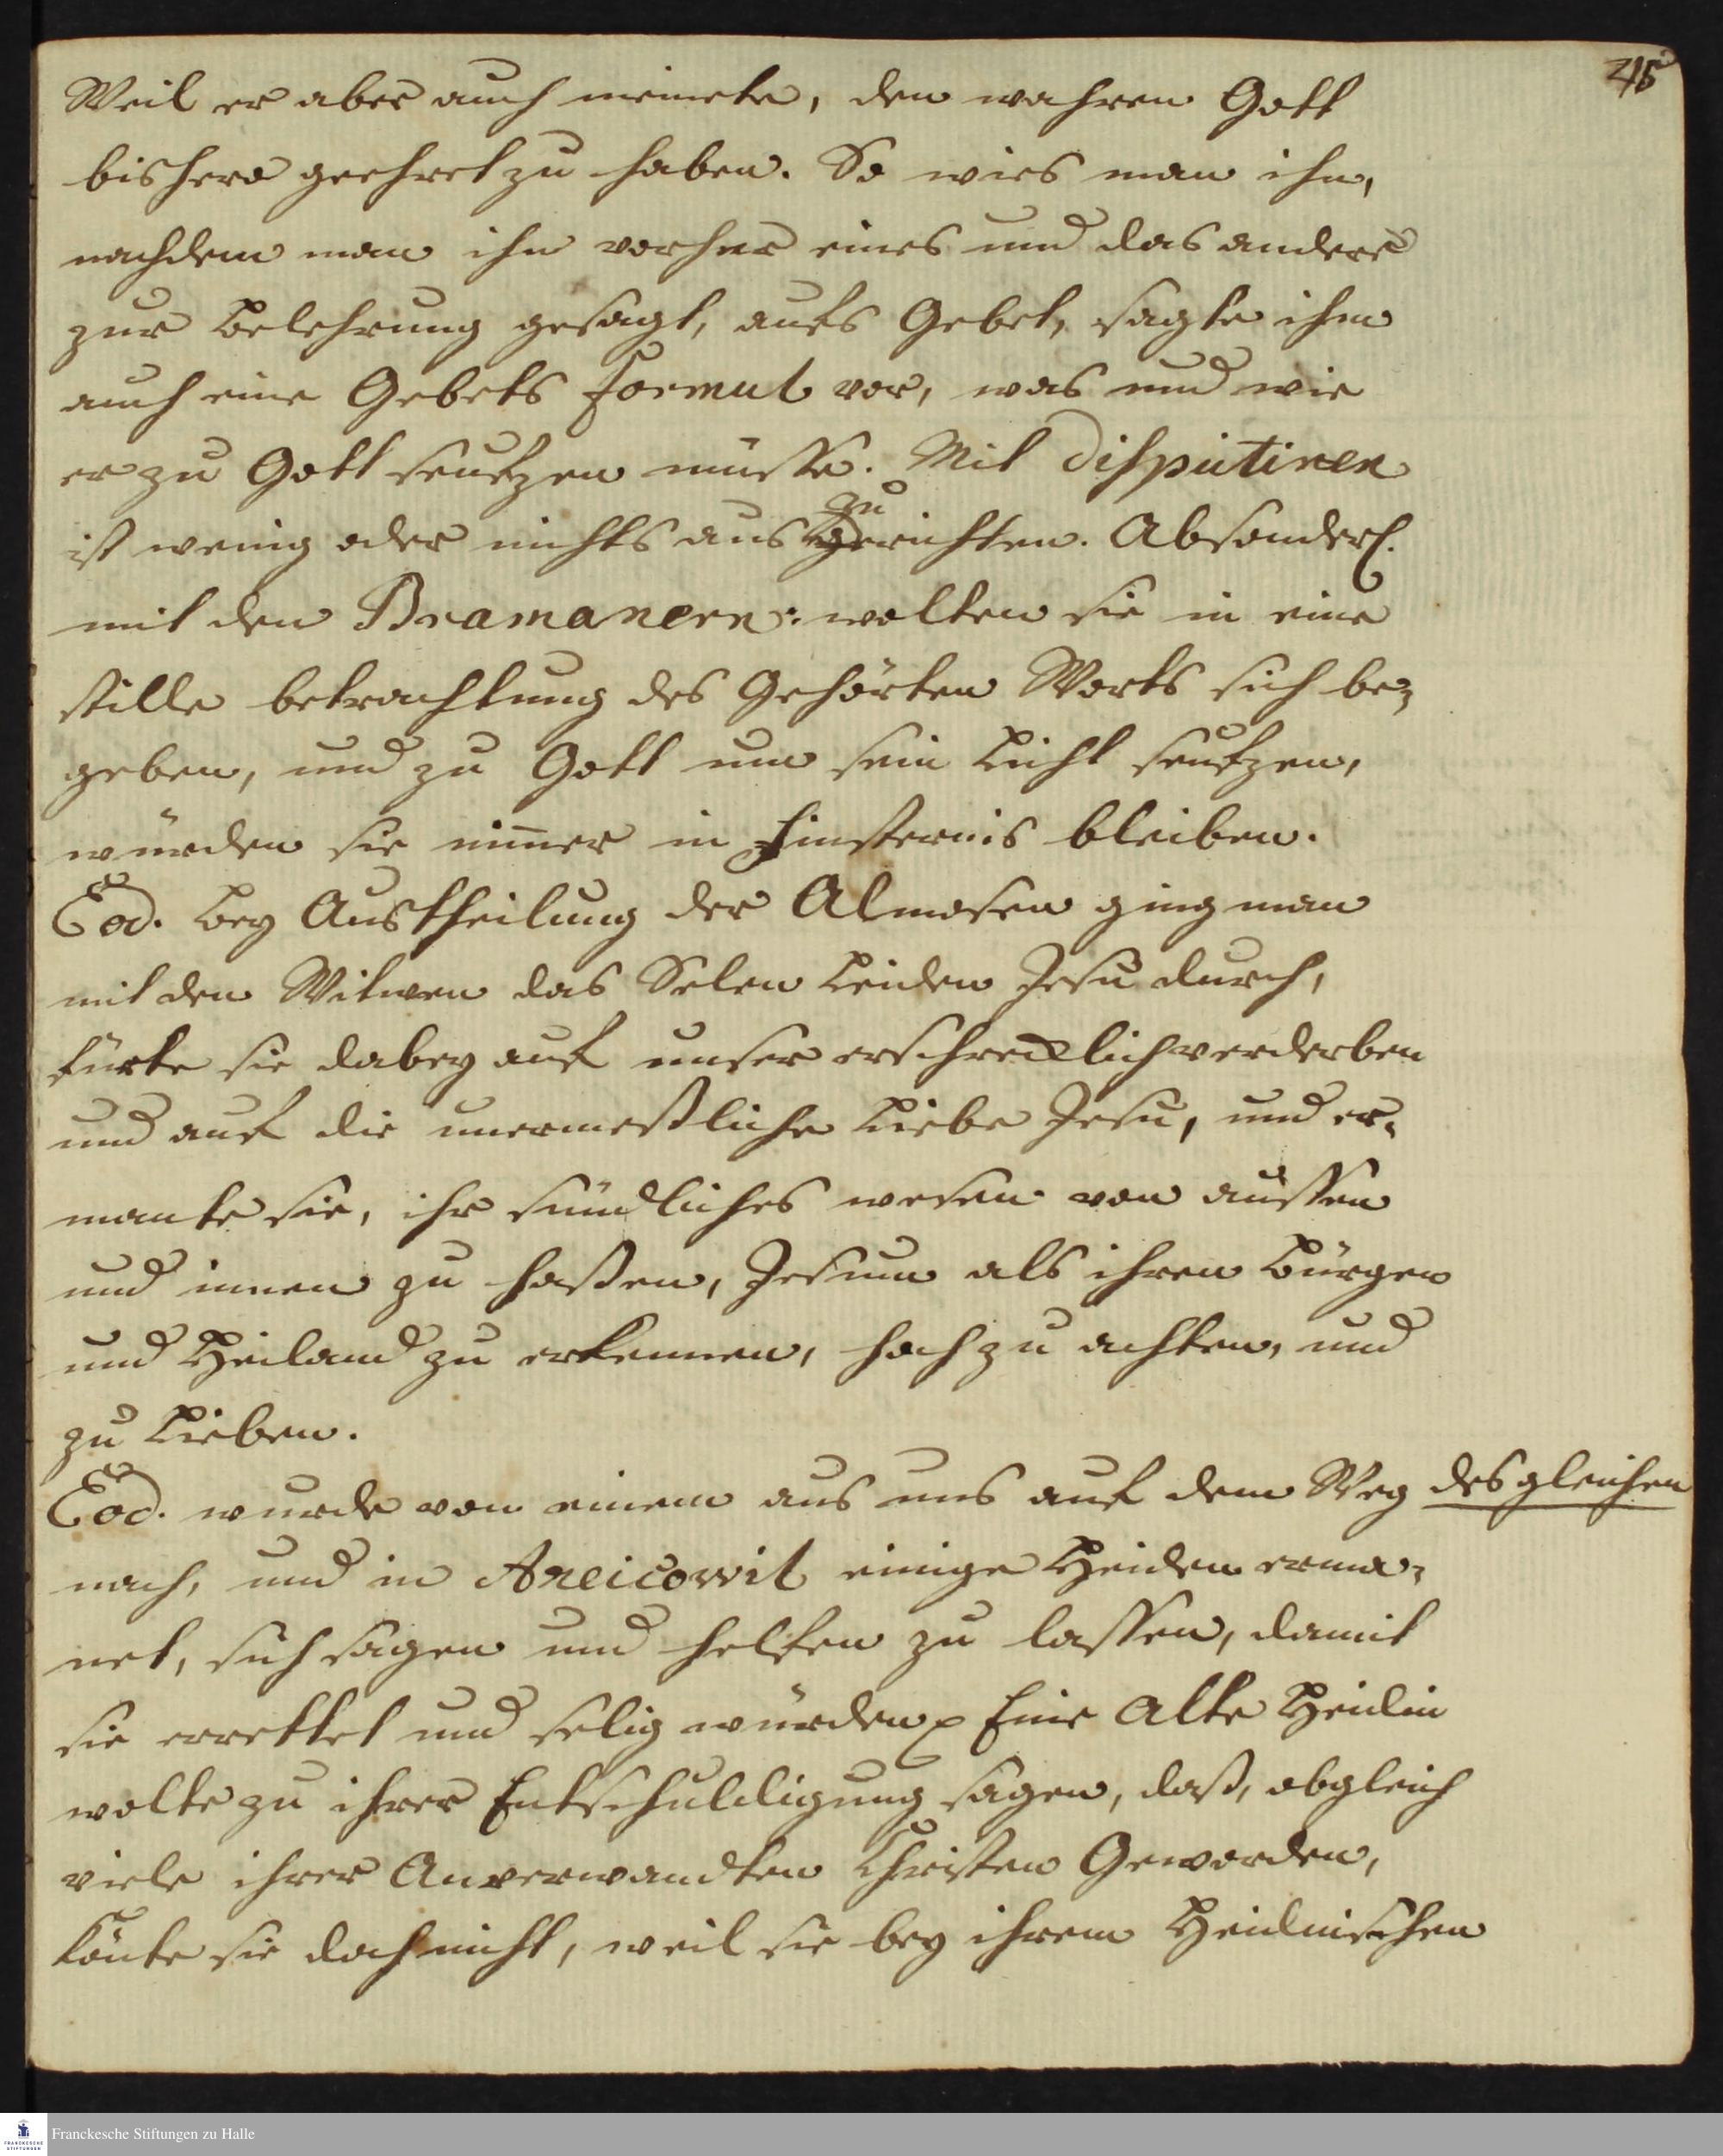 45
Weil er aber auch meinete, den wahren Gott
bishero geehret zu haben. So wies man ihn,
nachdem man ihn vorher eines und das andere
zur Belehrung gesagt, aufs Gebet, sagte ihm
auch eine Gebets formul vor, was und wie
er zu Gott seufzen müsse. Mit disputiren
zu
ist wenig oder nichts aus gerichten. Absonderl.
mit den Bramanern: wolten sie in eine
stille betrachtung des Gehörten Worts sich be-
geben, und zu Gott um sein Licht seufzen,
würden sie nim̄er in Finsternis bleiben.
Eod. Bey Austheilung der Almosen ging man
mit den Witwen das Selen Leiden Jesu durch,
fürte sie dabey auf unser erschrecklich verderben
und auf die unermeßliche Liebe Jesu, und er-
mante sie, ihr sündliches wesen von aussen
und innen zu haßen, Jesum als ihren Bürgen
und Heiland zu erkennen, hoch zu achten, und
zu Lieben.
Eod. wurde von einem aus uns auf dem Weg desgleichen
nach, und in Areicowil einige Heiden erma-
net, sich sagen und helfen zu lassen, damit
sie errettet und selig würden. Eine Alte Heidin
wolte zu ihrer Entschuldigung sagen, daß, obgleich
viele ihrer Anverwandten Christen Geworden,
könte sie doch nicht, weil sie bey ihrem Heidnischen
FRANCKESCHE STIFTUNGEN
Franckesche Stiftungen zu Halle